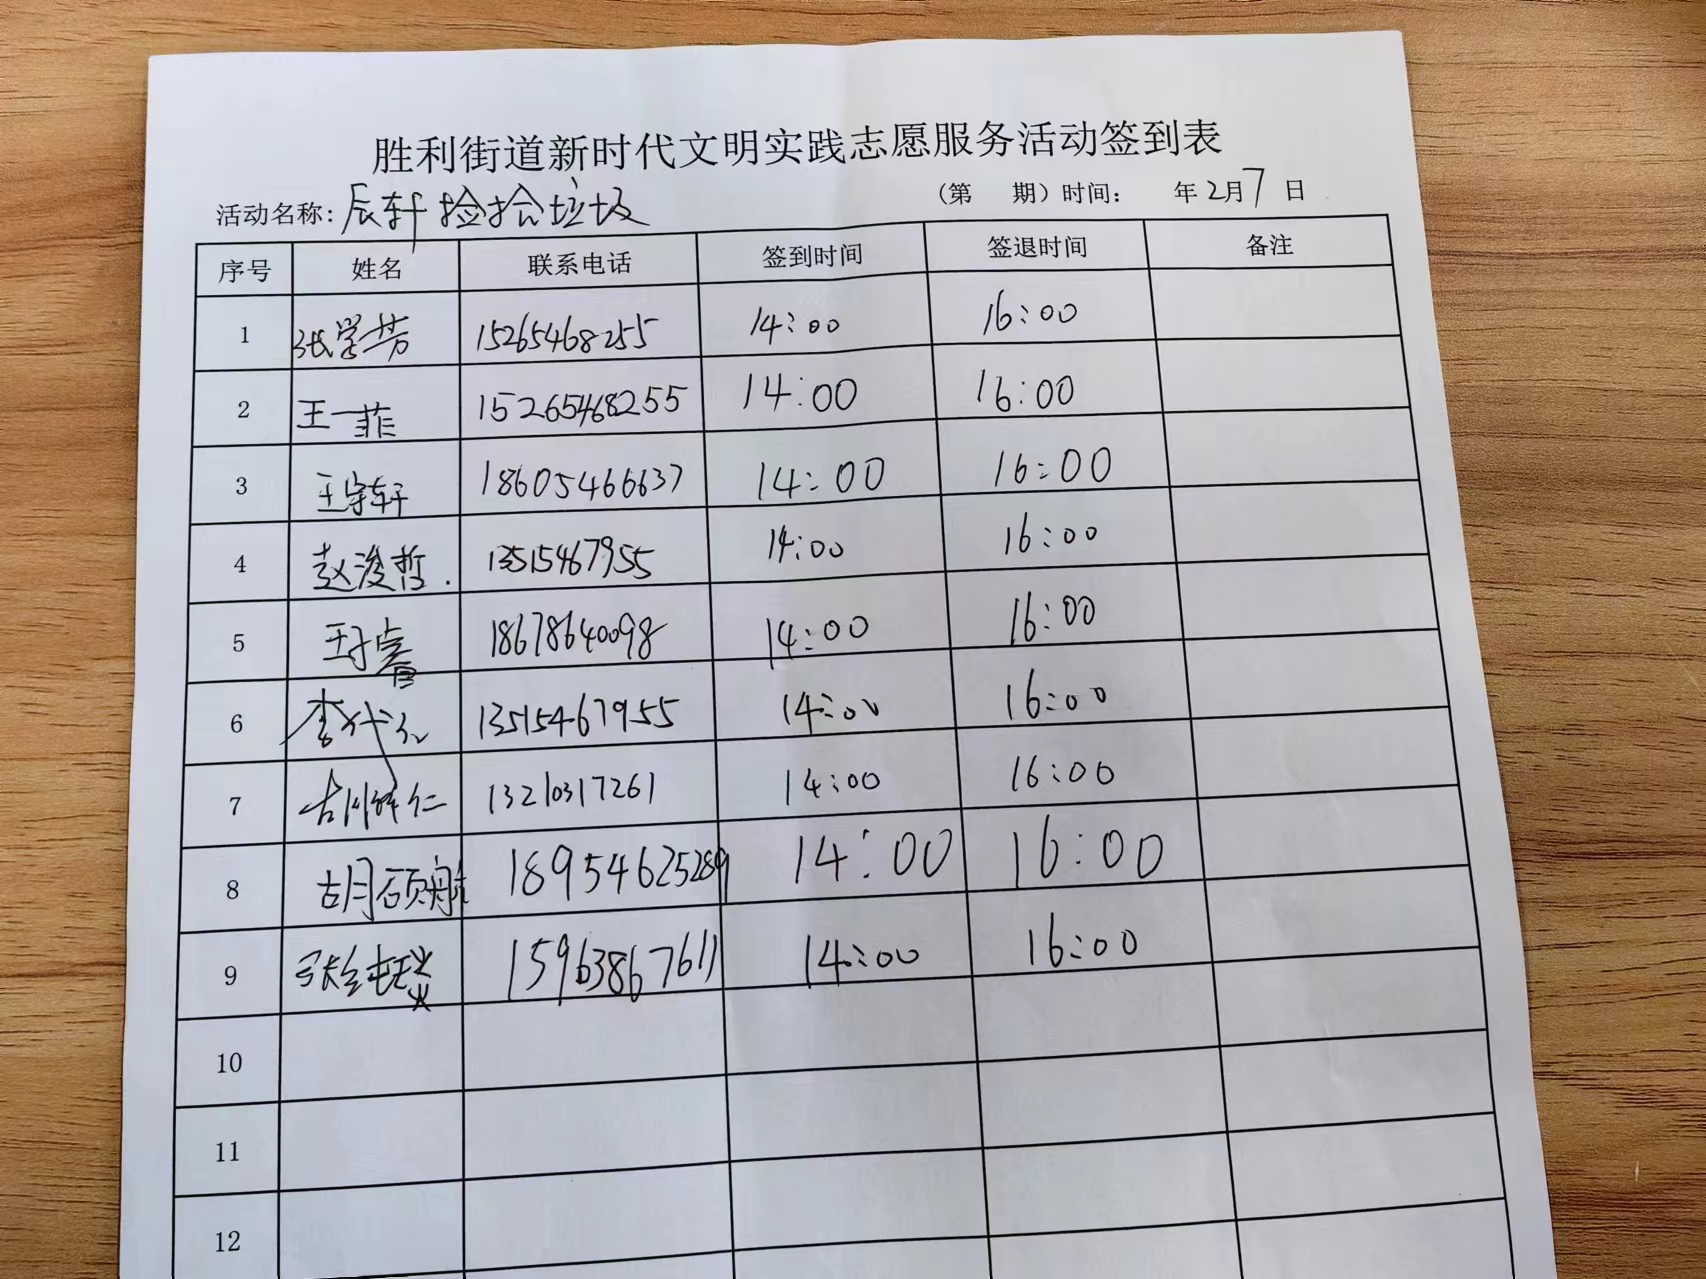 胜利街道新时代文明实践志愿服务活动签到表
活动名称: 辰轩捡拾垃圾 (第 期) 时间: 年 2月 7 日
序号 姓名 联系电话 签到时间 签退时间 备注
1 张学芳 15265468255 14:00 16:00
2 王一菲 15265468255 14:00 16:00
3 王宇轩 18605466637 14:00 16:00
4 赵浚哲 13515467955 14:00 16:00
5 王子睿 18678640098 14:00 16:00
6 李 13515467955 14:00 16:00
7 13210317261 14:00 16:00
8 胡硕航 18954625289 14:00 16:00
9 15963867611 14:00 16:00
10
11
12